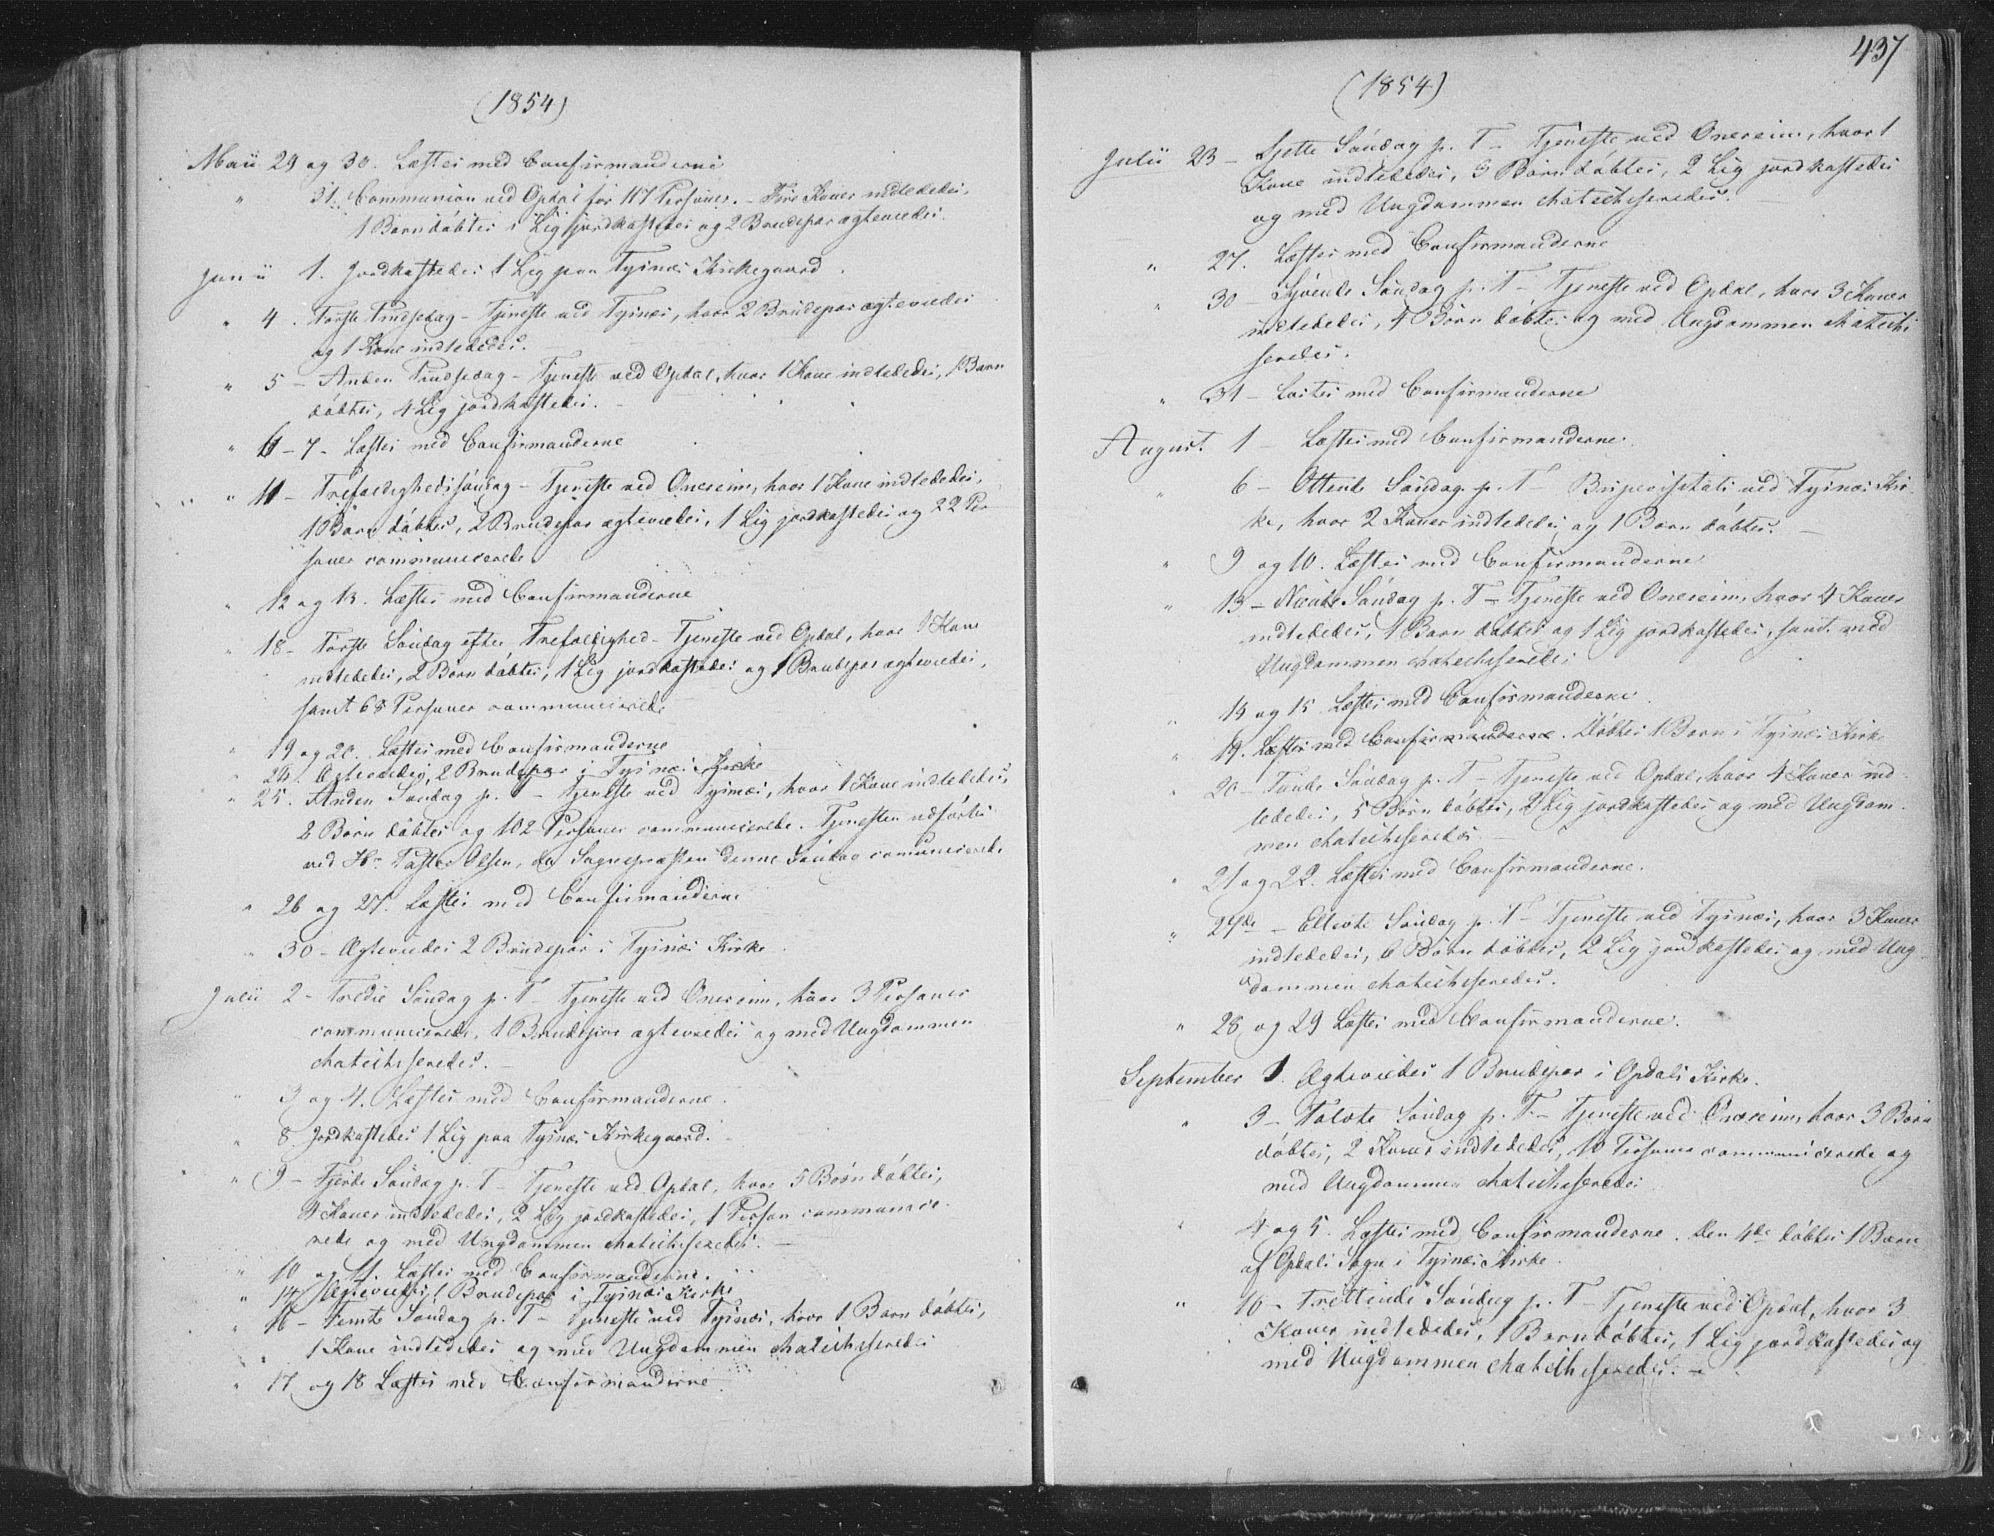 (1854)
Maii 29 og 30. Læstes med Confirmanderne
" 31. Communion ved Opdal for 117 Personer. - Fire Koner indlededes,
1 Barn døbtes 1 Lig jordkastedes og 2 Brudepar ægteviedes.
Junii 1. Jordkastedes 1 Lig paa Tysnæs Kirkegaard.
" 4. Første Pindsedag - Tjeneste ved Tysnæs, hvor 2 Brudepar ægteviedes
og 1 Kone indlededes.
" 5 - Anden Pindsedag - Tjeneste ved Opdal, hvor 1 Kone indlededes, 1 Barn
døbtes, 4 Lig jordkastedes. -
" 6 - 7 - Læstes med Confirmanderne
" 11 - Trefoldighedssøndag - Tjeneste ved Onereim, hvor 1 Kone indlededes,
1 Barn døbtes, 2 Brudepar ægteviedes, 1 Lig jordkastedes og 22 Per
soner communicerede
" 12 og 13. Læstes med Confirmanderne
" 18 - Første Søndag efter Trefoldighed - Tjeneste ved Opdal, hvor 1 Kone
indlededes, 2 Børn døbtes, 1 Lig jordkastedes og 1 Brudepar ægteviedes,
samt 68 Personer communicerede
" 19 og 20. Læstes med Confirmanderne
" 24. Ægteviedes 2 Brudepar i Tysnæs Kirke
" 25. Anden Søndag p. T - Tjeneste ved Tysnæs, hvor 1 Kone indlededes,
2 Børn døbtes og 102 Personer communicerede. Tjenesten udførtes
ved Hr Pastor Olsen, da Sognepræsten denne Søndag comunicerede
" 26 og 27. Læstes med Confirmanderne
" 30 - Ægteviedes 2 Brudepar i Tysnæs Kirke
Julii 2 - Tredie Søndag p. T - Tjeneste ved Onereim, hvor 3 Personer
communicerede, 1 Brudepar ægteviedes og med Ungdommen
chatechiseredes. -
" 3 og 4. Læstes med Confirmanderne.
" 8. Jordkastedes 1 Lig paa Tysnæs Kirkegaard. -
" 9 - Fjerde Søndag p. T - Tjeneste ved Opdal, hvor 5 Børn døbtes,
4 Koner indlededes, 2 Lig jordkastedes, 1 Person communice-
rede og med Ungdommen chatechiseredes. -
" 10 og 11. Læstes med Confirmanderne.
" 14 Ægteviedes 1 Brudepar i Tysnæs Kirke
" 16 - Femte Søndag p. T - Tjeneste ved Tysnæs, hvor 1 Barn døbtes,
1 Kone indlededes og med Ungdommen chatechiseredes
" 17 og 18 Læstes med Confirmanderne
437
(1854)
Julii 23 - Sjette Søndag p. T - Tjeneste ved Onereim, hvor 1
Kone indlededes, 3 Børn døbtes, 2 Lig jordkastedes
og med Ungdommen chatechiseredes. -
" 27. Læstes med Confirmanderne
" 30 - Syvende Søndag p. T - Tjeneste ved Opdal, hvor 3 Koner
indlededes, 4 Børn døbtes og med Ungdommen chatechi
seredes.
" 31 - Læstes med Confirmanderne
August 1 - Læstes med Confirmanderne.
" 6 - Ottende Søndag p. T - Bispevisitats ved Tysnæs Kir-
ke, hvor 2 Koner indlededes og 1 Barn døbtes. -
" 9 og 10. Læstes med Confirmanderne
" 13 - Niende Søndag p. T - Tjeneste ved Onereim, hvor 4 Koner
indlededes, 1 Barn døbtes og 1 Lig jordkastedes, samt med
Ungdommen chatechiseredes
" 14 og 15. Læstes med Confirmanderne.
" 19. Læstes med Confirmanderne. Døbtes 1 Barn i Tysnæs Kirke
" 20 - Tiende Søndag p. T - Tjeneste ved Opdal, hvor 4 Koner ind-
lededes, 5 Børn døbtes, 2 Lig jordkastedes og med Ungdom-
men chatechiseredes. -
" 21 og 22. Læstes med Confirmanderne.
" 27de - Ellevte Søndag p. T - Tjeneste ved Tysnæs, hvor 3 Koner
indlededes, 6 Børn døbtes, 2 Lig jordkastedes og med Ung-
dommen chatechiseredes.
" 28 og 29 Læstes med Confirmanderne.
September 1. Ægteviedes 1 Brudepar i Opdals Kirke.
" 3 - Tolvte Søndag p. T. - Tjeneste ved Onereim, hvor 3 Børn
døbtes, 2 Koner indlededes, 10 Personer communicerede og
med Ungdommen chatechiseredes
" 4 og 5. Læstes med Confirmanderne. Den 4de døbtes 1 Barn
af Opdals Sogn i Tysnæs Kirke.
" 10 - Trettende Søndag p. T - Tjeneste ved Opdal, hvor 3
Koner indlededes, 1 Barn døbtes, 1 Lig jordkastedes og
med Ungdommen chatechiseredes. -